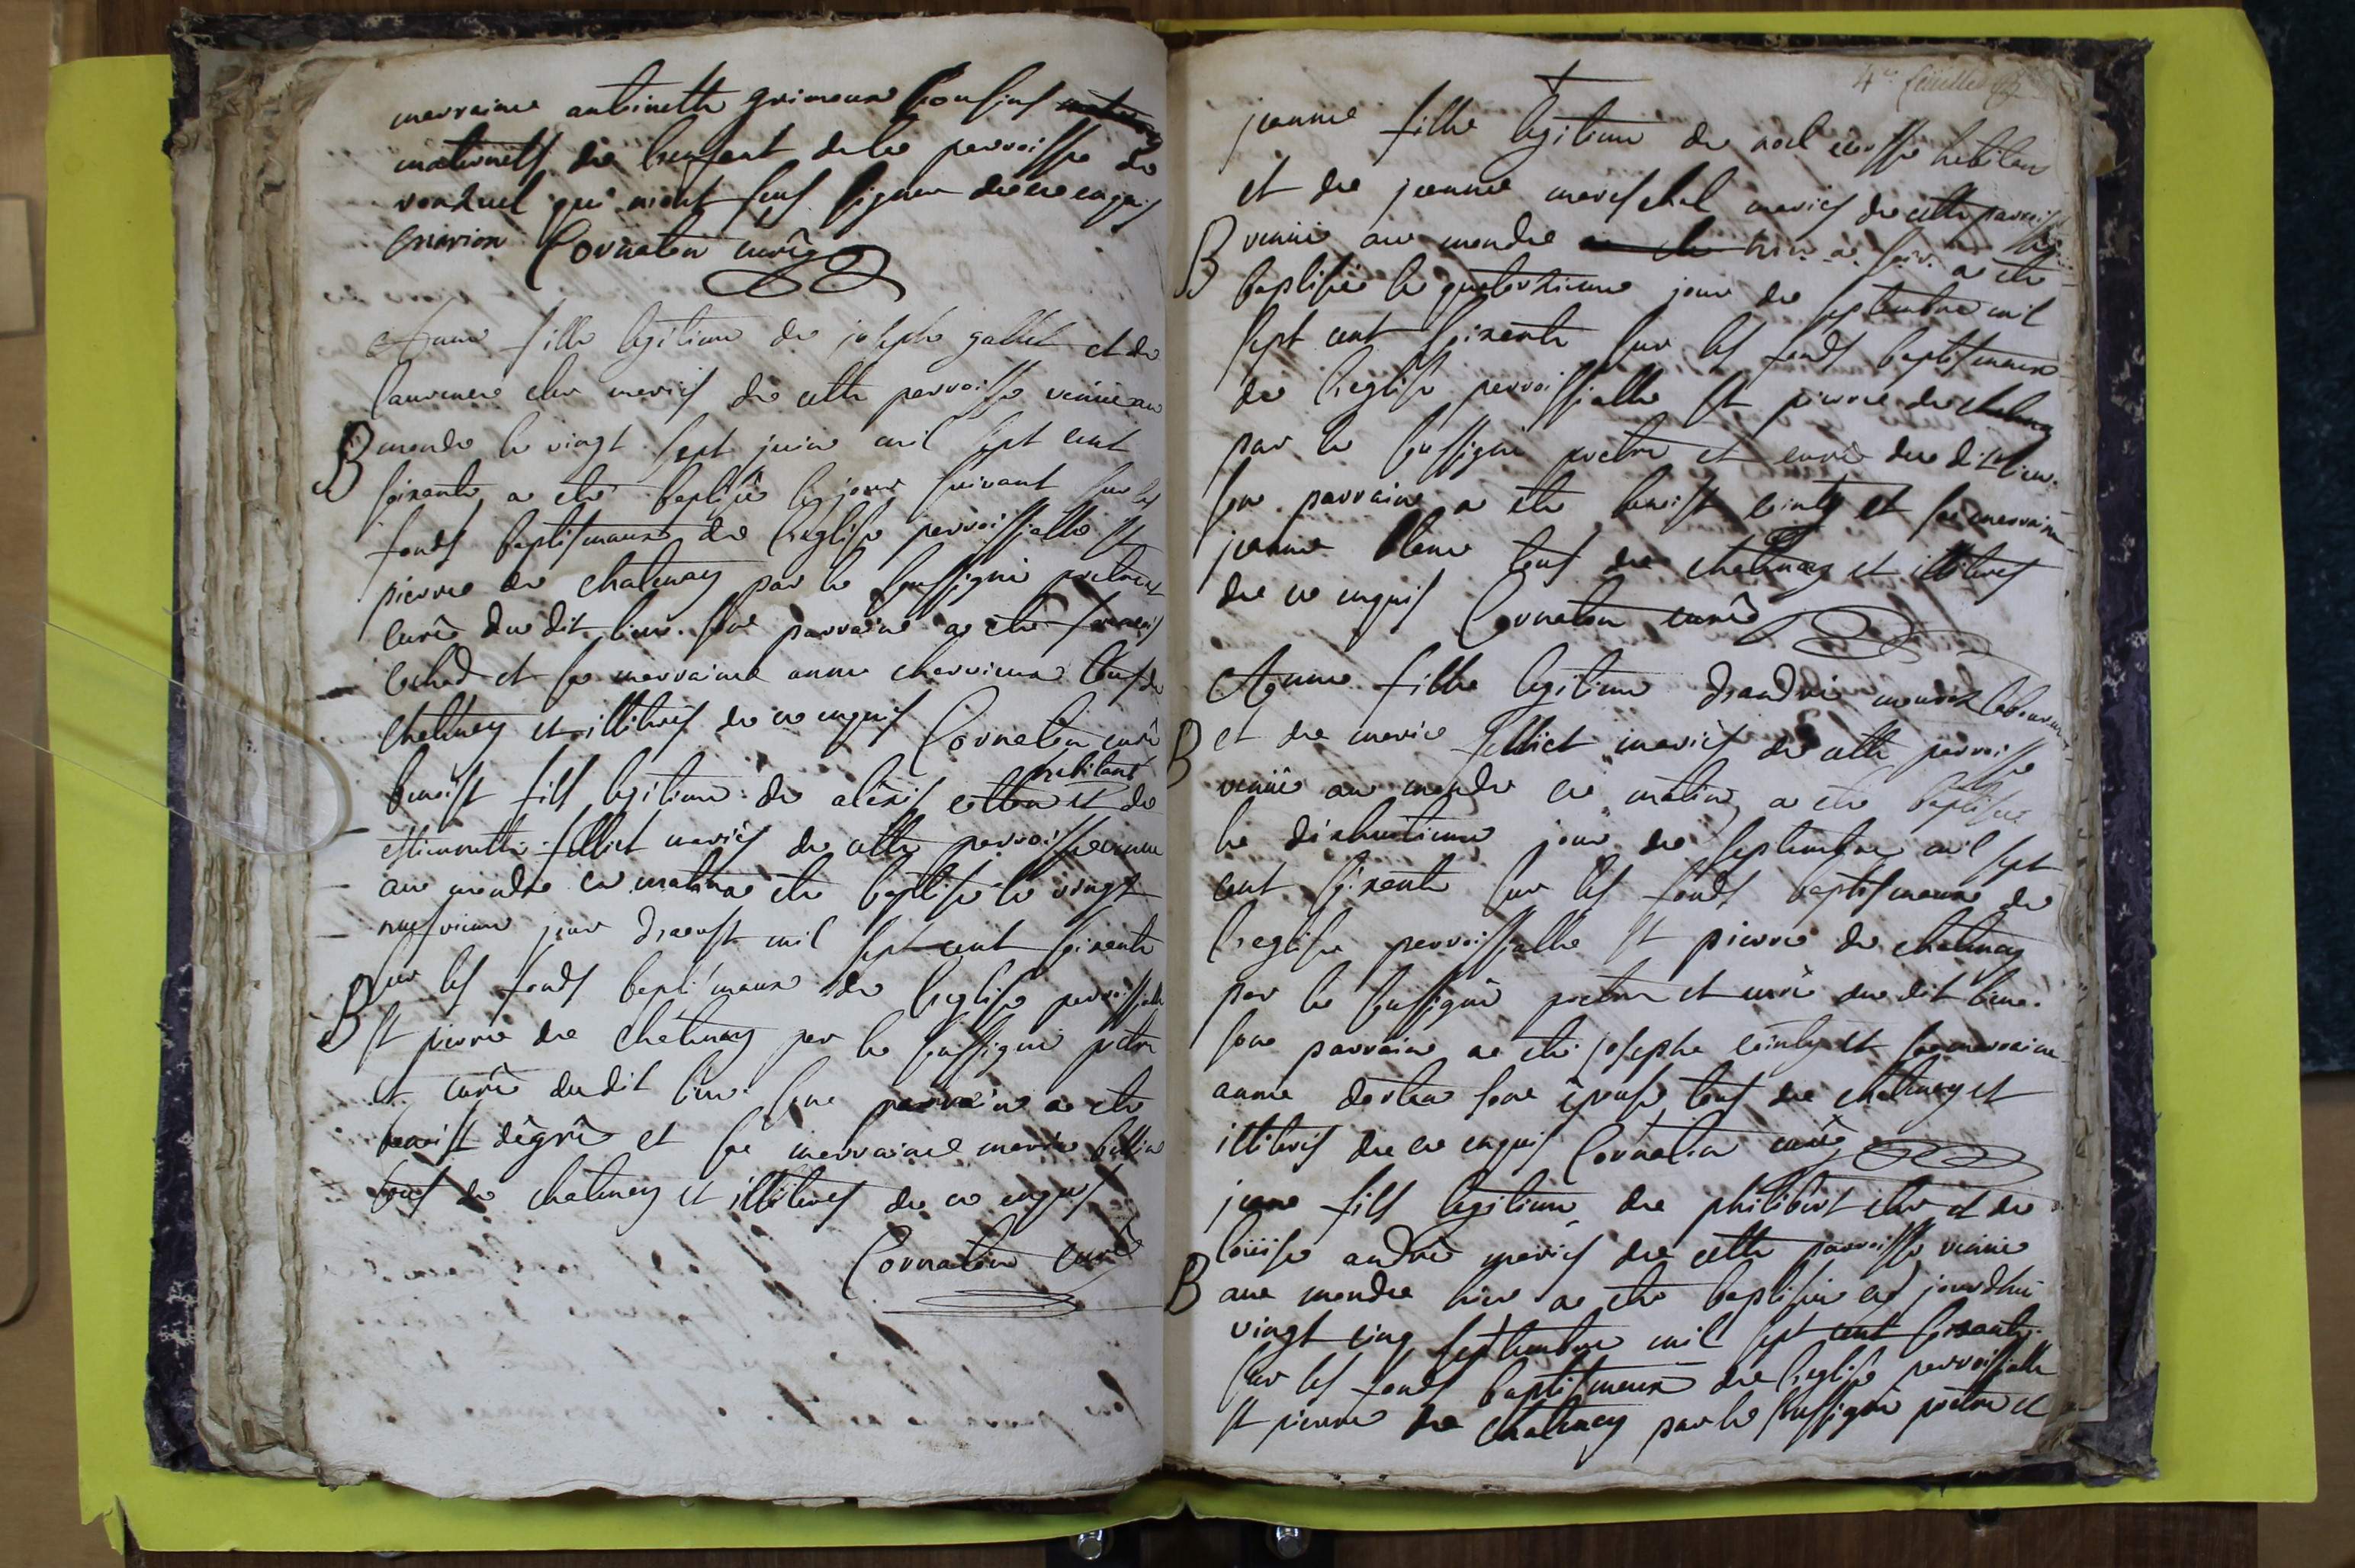 marraine antoinette grimoux cousins
maternels de l'enfant de la parroisse de
qui n'ont sçus signer de ce enquis
Cornaton curé
Anne fille legitime de joseph gallet et de
laurence cler mariés de cette parroisse venüe au
B monde le vingt sept juin mil sept cent
soixante a eté baptisée le jour suivant sur les
fonds baptismaux de l'eglise parroissialle St
pierre de chatenay par le soussigné prêtre et
curé du dit lieu. son parrain a eté francois
et sa marraine anne tous de
chatenay et illiterés de ce enquis Cornaton curé
habitant
benoist fils legitime de alexis et de
estiennette mariés de cette parroisse venu
au monde ce matin a eté baptisé le vingt
neufvieme jour d'aoust mil sept cent soixante
B sur les fonds baptismaux de l'eglise parroissialle
St pierre de chatenay par le soussigné prêtre
et curé du dit lieu. son parrain a eté
benoist dégré et sa marraine marie
tous de chatenay et illiterés de ce enquis
Cornaton curé
4e feuillet
jeanne fille legitime de noel habitant
et de jeanne mareschal mariés de cette parroisse
B venüe au monde hier a soir a eté
baptisée le quatorzieme jour de septembre mil
sept cent soixante sur les fonds baptismaux
de l'eglise parroissialle St pierre de chatenay
par le soussigné prêtre et curé du dit lieu.
son parrain a eté benoist et sa marraine
jeanne tous de chatenay et illiterés
de ce enquis Cornaton curé
Anne fille legitime d'andré laboureur
B et de marie mariés de cette parroisse
venüe au monde ce matin a eté baptisée
le dixhuitieme jour de septembre mil sept
cent soixante sur les fonds baptismaux de
l'eglise parroissialle St pierre de chatenay
par le soussigné prêtre et curé du dit lieu.
son parrain a eté joseph et sa marraine
anne son épouse tous de chatenay et
illiterés de ce enquis Cornaton curé
jean fils legitime de philibert cler et de
loüise andré mariés de cette parroisse venüe
B au monde hier a eté baptisée ce jourdhui
vingt cinq septembre mil sept cent soixante
sur les fonds baptismaux de l'eglise parroissialle
St pierre de chatenay par le soussigné prêtre et